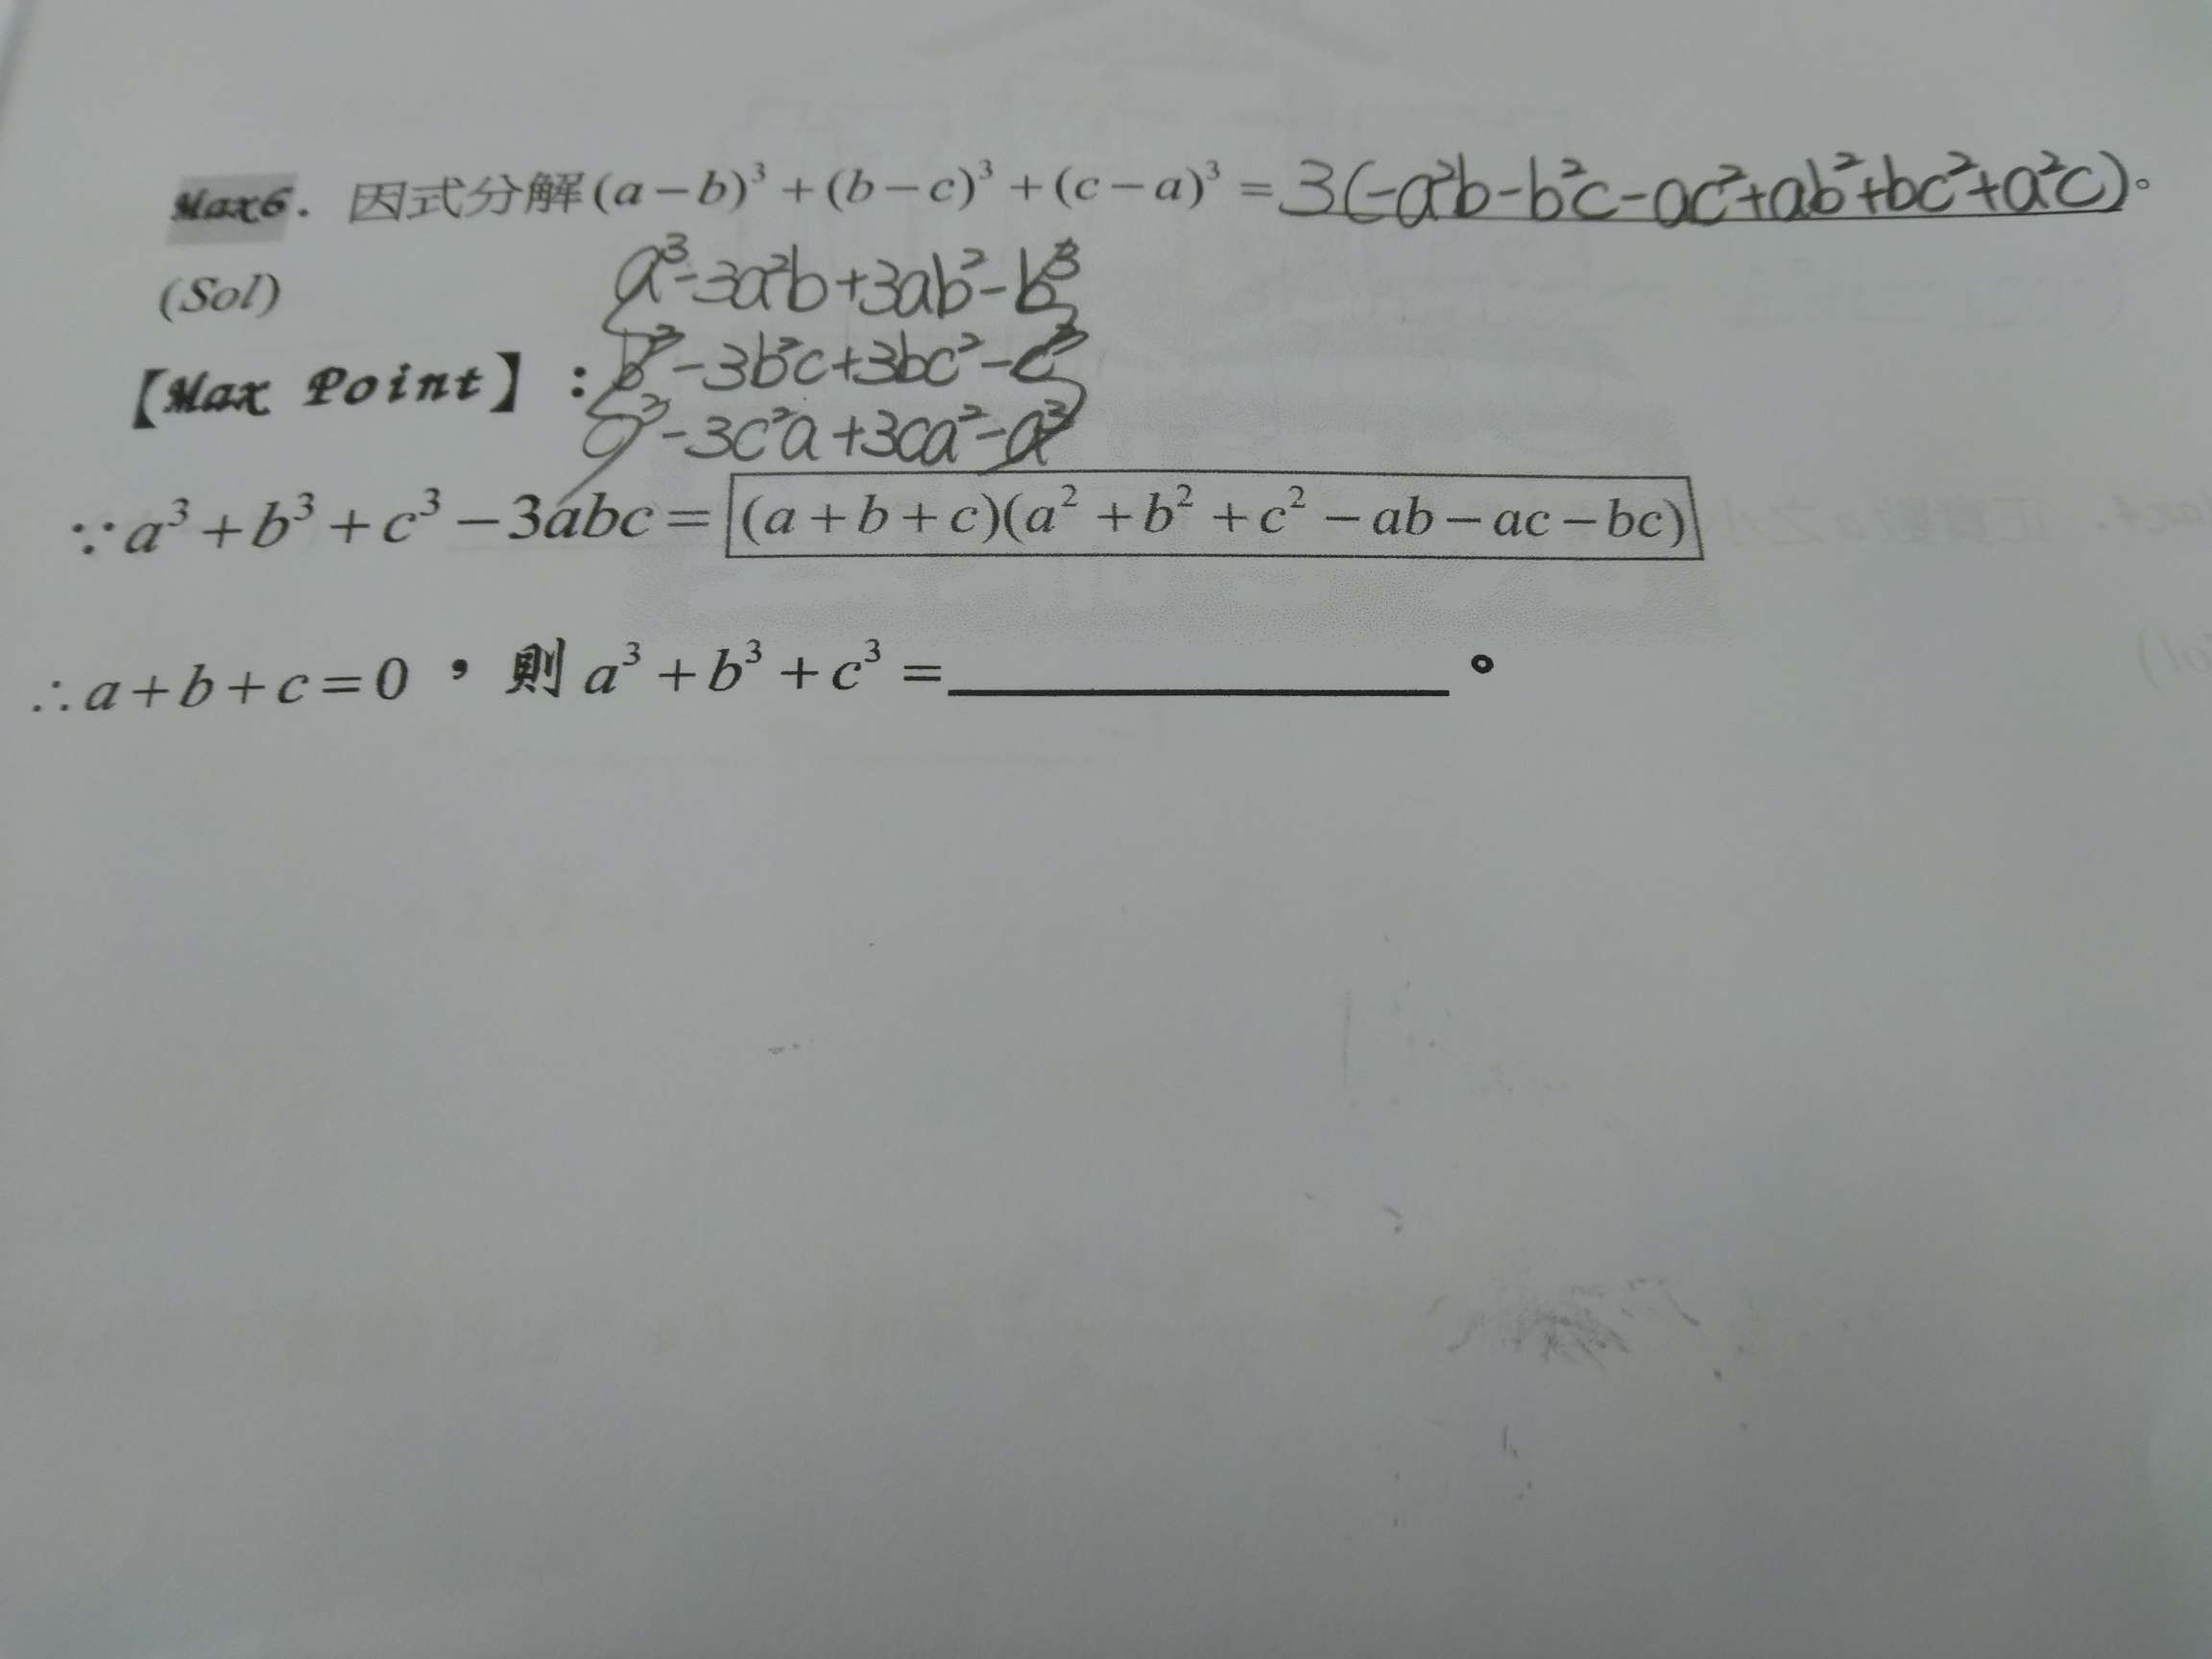 Max6. 因式分解(a-b)³+(b-c)³+(c-a)³=3(-a²b-b²c-ac²+ab²+bc²+a²c)。
(Sol)
a³-3a²b+3ab²-b³
b³-3b²c+3bc²-c³
【Max Point】:
c³-3c²a+3ca²-a³
∵a³+b³+c³-3abc=(a+b+c)(a²+b²+c²-ab-ac-bc)
∴a+b+c=0,則a³+b³+c³=__________。